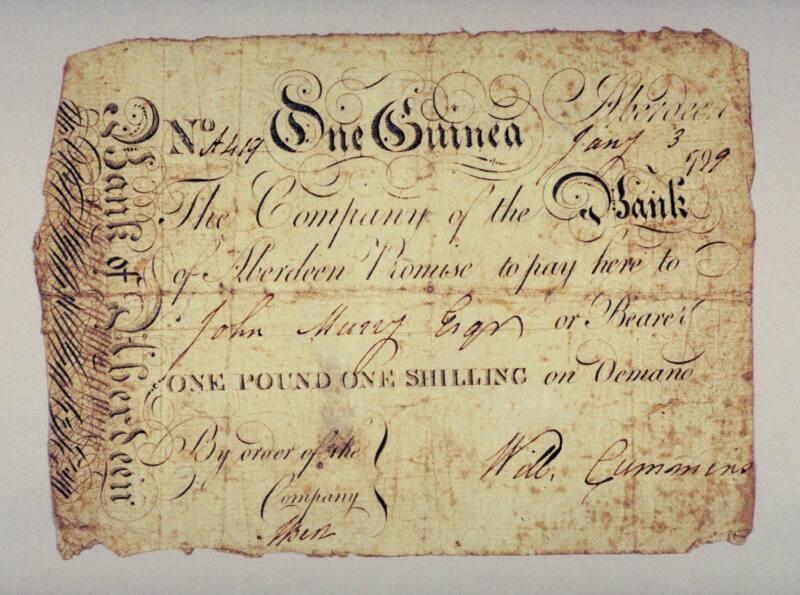 Bank of Aberdeen
No A419 One Guinea Aberdeen
Jany 3 1799
The Company of the Bank
of Aberdeen Promise to pay here to
John Murry Esqr or Bearer
ONE POUND ONE SHILLING on Demand
By order of the
Company
Will. Cummins